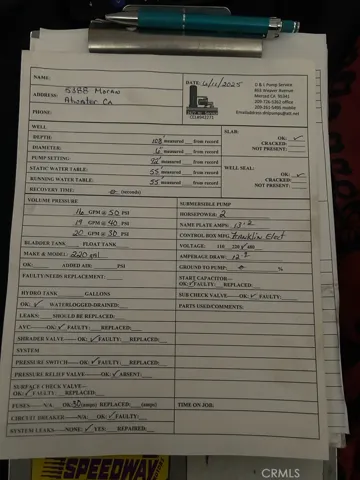 NAME:
DATE: 6/11/2025
U & L Pump Service
ADDRESS: 5388 Moran
Atwater Ca
Merced CA 95341
209-726-5362 office
PHONE:
WELL
DEPTH: 108 measured from record
DIAMETER: 6" measured from record
PUMP SETTING measured from record
STATIC WATER TABLE: 55 measured from record
RUNNING WATER TABLE: 55 measured from record
RECOVERY TIME: (seconds)
SLAB:
OK: ✓
CRACKED:
NOT PRESENT:
WELL SEAL:
OK: ✓
CRACKED:
NOT PRESENT:
VOLUME PRESSURE
16 GPM @ 50 PSI
19 GPM @ 40 PSI
20 GPM @ 30 PSI
BLADDER TANK FLOAT TANK
MAKE & MODEL: 220 gal
OK: ADDED AIR: PSI
FAULTY/NEEDS REPLACEMENT:
HYDRO TANK GALLONS
OK: ✓ WATERLOGGED-DRAINED:
LEAKS: SHOULD BE REPLACED:
AVC OK: ✓ FAULTY: REPLACED:
SHRADER VALVE OK: ✓ FAULTY:
SYSTEM
PRESSURE SWITCH OK: ✓ FAULTY:
PRESSURE RELIEF VALVE OK: ✓ ABSENT:
SURFACE CHECK VALVE
OK: ✓ FAULTY: REPLACED:
FUSES N/A OK: 30 (amps) REPLACED: (amps)
CIRCUIT BREAKER N/A: OK: ✓ FAULTY:
SYSTEM LEAKS NONE: ✓ YES: REPAIRED:
SUBMERSIBLE PUMP
HORSEPOWER: 2
NAME PLATE AMPS: 13.2
CONTROL BOX MFG: Franklin Elect
VOLTAGE: 110 220 ✓ 480
AMPERAGE DRAW: 12.1
GROUND TO PUMP: %
START CAPACITOR
OK: ✓ FAULTY: REPLACED:
SUB CHECK VALVE OK: ✓ FAULTY:
PARTS USED/COMMENTS:
TIME ON JOB:
SPEEDWAY
CRMLS